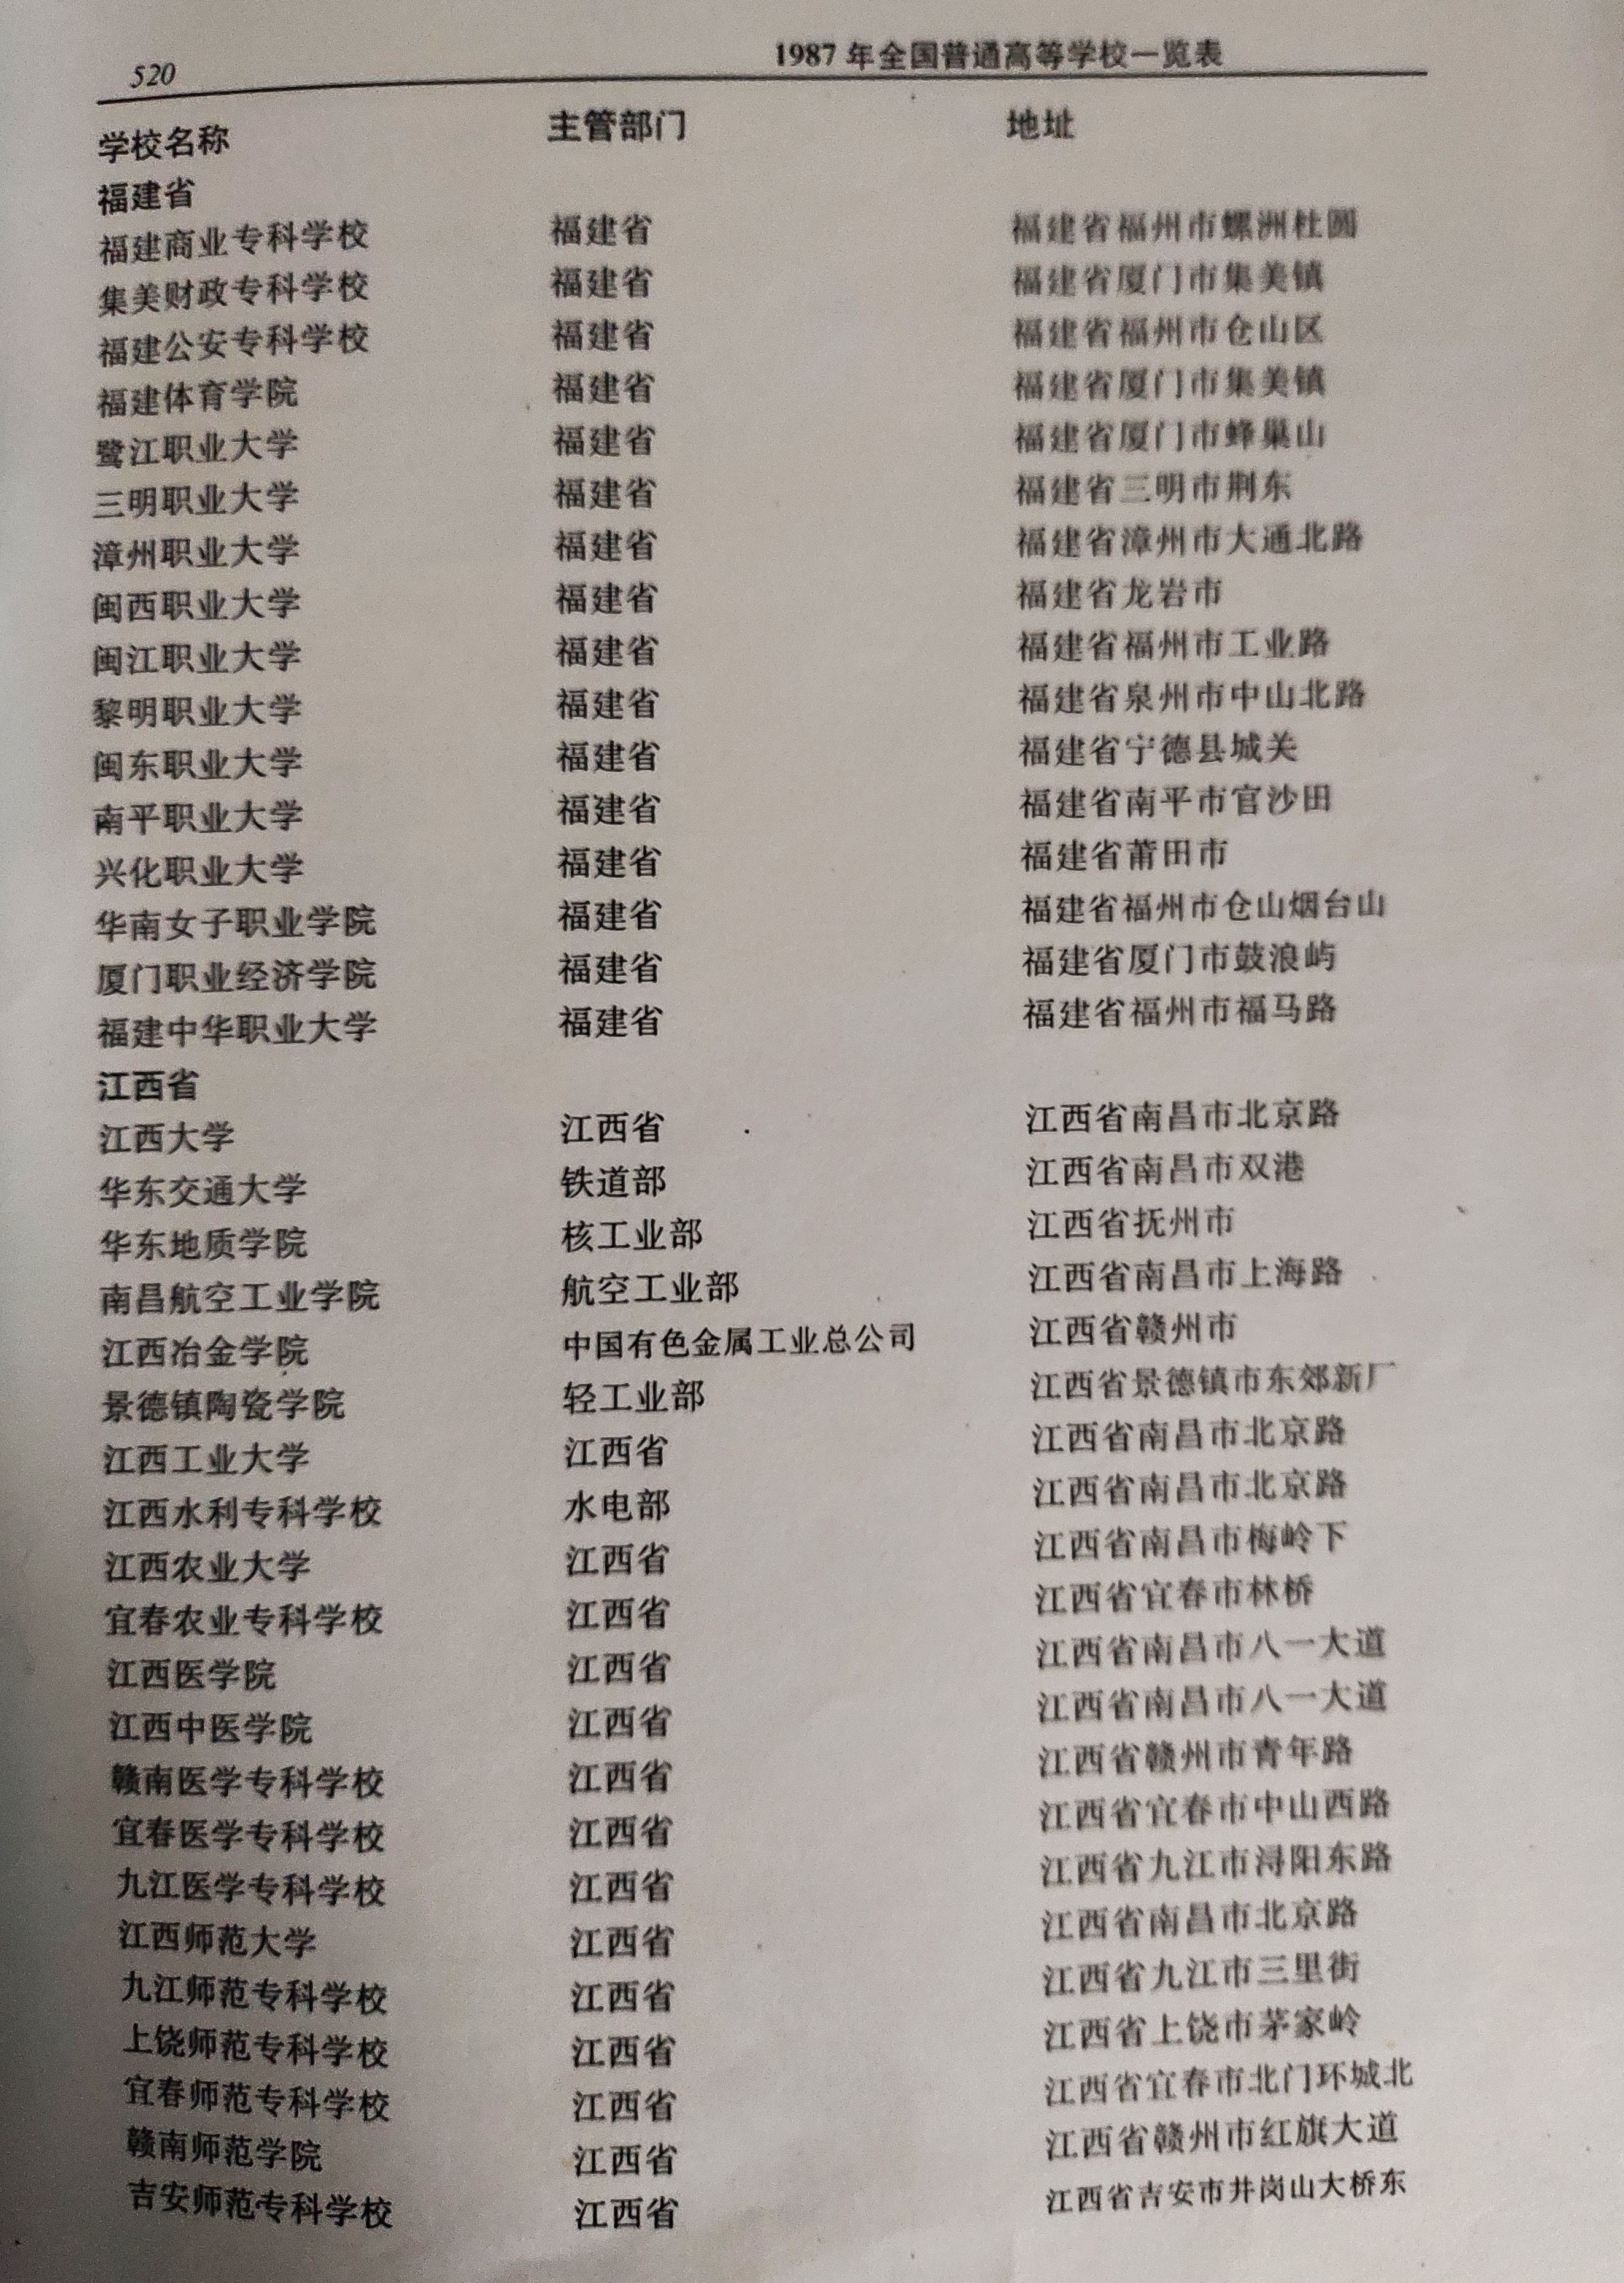 520 1987年全国普通高等学校一览表
学校名称 主管部门 地址
福建省
福建商业专科学校 福建省 福建省福州市螺洲杜圆
集美财政专科学校 福建省 福建省厦门市集美镇
福建公安专科学校 福建省 福建省福州市仓山区
福建体育学院 福建省 福建省厦门市集美镇
鹭江职业大学 福建省 福建省厦门市蜂巢山
三明职业大学 福建省 福建省三明市荆东
漳州职业大学 福建省 福建省漳州市大通北路
闽西职业大学 福建省 福建省龙岩市
闽江职业大学 福建省 福建省福州市工业路
黎明职业大学 福建省 福建省泉州市中山北路
闽东职业大学 福建省 福建省宁德县城关
南平职业大学 福建省 福建省南平市官沙田
兴化职业大学 福建省 福建省莆田市
华南女子职业学院 福建省 福建省福州市仓山烟台山
厦门职业经济学院 福建省 福建省厦门市鼓浪屿
福建中华职业大学 福建省 福建省福州市福马路
江西省
江西大学 江西省 江西省南昌市北京路
华东交通大学 铁道部 江西省南昌市双港
华东地质学院 核工业部 江西省抚州市
南昌航空工业学院 航空工业部 江西省南昌市上海路
江西冶金学院 中国有色金属工业总公司 江西省赣州市
景德镇陶瓷学院 轻工业部 江西省景德镇市东郊新厂
江西工业大学 江西省 江西省南昌市北京路
江西水利专科学校 水电部 江西省南昌市北京路
江西农业大学 江西省 江西省南昌市梅岭下
宜春农业专科学校 江西省 江西省宜春市林桥
江西医学院 江西省 江西省南昌市八一大道
江西中医学院 江西省 江西省南昌市八一大道
赣南医学专科学校 江西省 江西省赣州市青年路
宜春医学专科学校 江西省 江西省宜春市中山西路
九江医学专科学校 江西省 江西省九江市浔阳东路
江西师范大学 江西省 江西省南昌市北京路
九江师范专科学校 江西省 江西省九江市三里街
上饶师范专科学校 江西省 江西省上饶市茅家岭
宜春师范专科学校 江西省 江西省宜春市北门环城北
赣南师范学院 江西省 江西省赣州市红旗大道
吉安师范专科学校 江西省 江西省吉安市井岗山大桥东